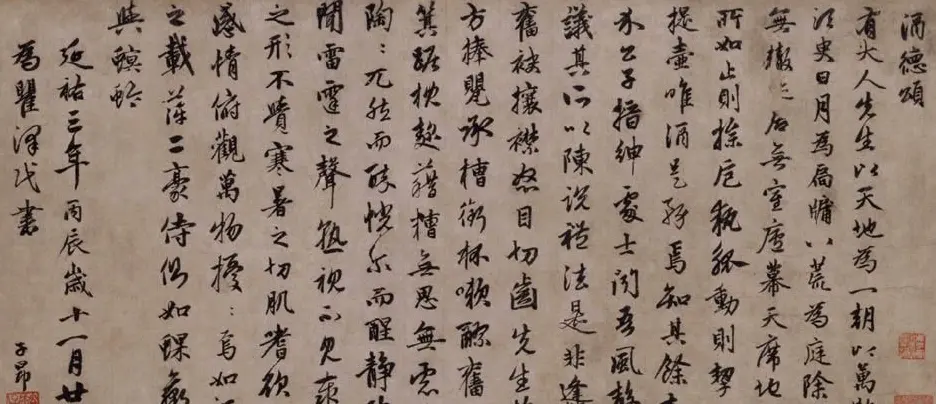 酒德頌
有大人先生以天地為一朝以萬
須臾日月為扃牖八荒為庭除
無轍迹居無室廬幕天席地
所如止則操卮執觚動則挈
提壺唯酒是務焉知其餘有
介公子搢紳處士聞吾風聲
議其所以陳說禮法是非逢
奮袂攘襟怒目切齒先生於
方捧甖承槽銜杯漱醪奮
箕踞枕麴藉糟無思無慮
陶〻兀然而醉怳尒而醒靜
聞雷霆之聲熟視不見泰
之形不覺寒暑之切肌嗜欲
感情俯觀萬物擾〻焉如江
之載萍二豪侍側如蜾蠃
與螟蛉
延祐三年丙辰歲十一月廿
為瞿澤民書
子昂